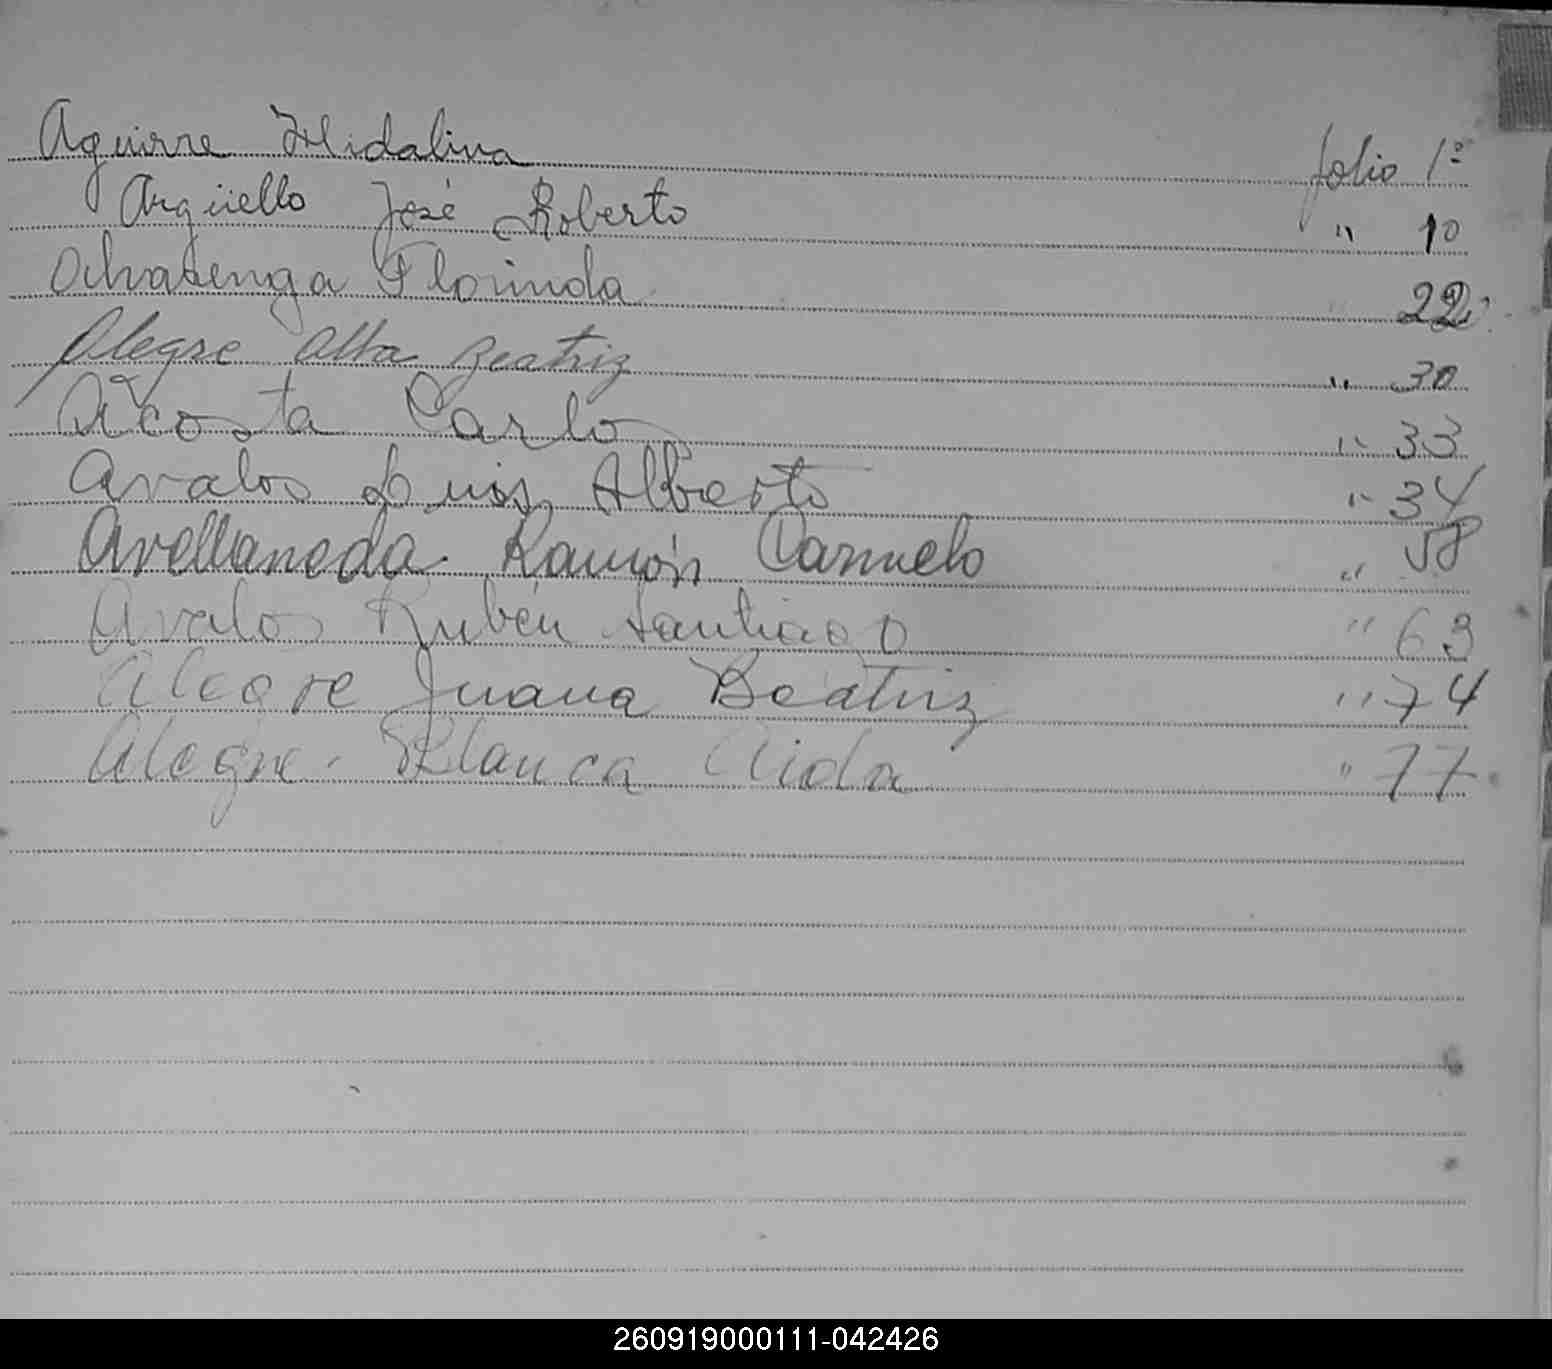 Aguirre Hidalina folio 1º
Argüello José Roberto " 10
Alvarenga Florinda " 22
Alegre Alba Beatriz " 30
Acosta Carlo " 33
Avalos Luis Alberto " 34
Avellaneda Ramón Carmelo " 58
Avalos Rubén Santiago " 63
Alegre Juana Beatriz " 74
Alegre Blanca Aida " 77
260919000111-042426